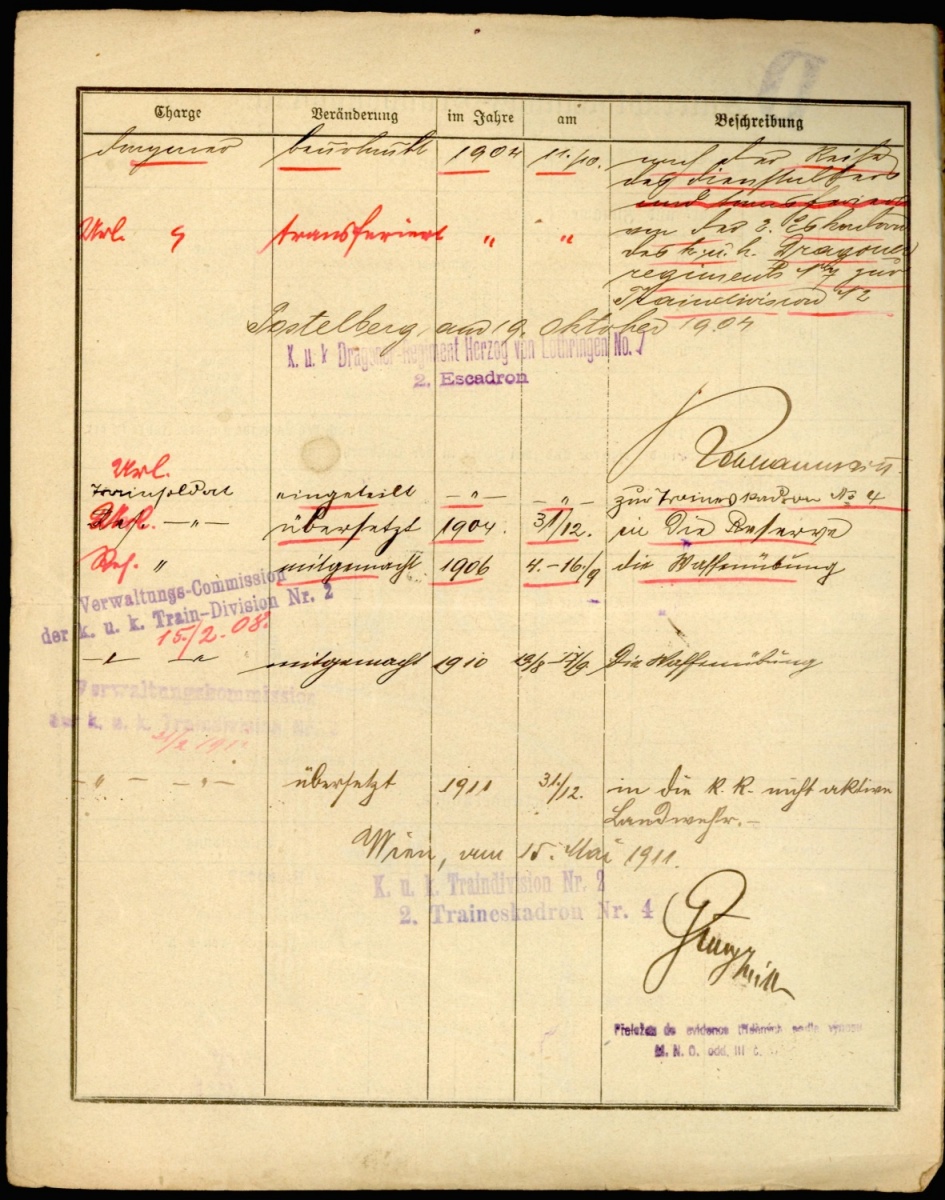 Charge Veränderung im Jahre am Beschreibung
Dragoner beurlaubt 1904 11./10. nach der Reihe
des Dienstalters
und transferiert
Url. " transferiert " " von der 2. Eskadron
des k. u. k. Dragoner
regiments No 7 zur
Traindivision No 2
Postelberg, am 19. Oktober 1904
K. u. k. Dragoner-Regiment Herzog von Lothringen No. 7
2. Escadron
Url.
Trainsoldat eingeteilt – " – – " – zur Traineskadron No 4
Res. – " – übersetzt 1904. 31/12. in die Reserve
Res. " mitgemacht 1906 4.–16./9 die Waffenübung
Verwaltungs-Commission
der k. u. k. Train-Division Nr. 2
15./2. 08.
mitgemacht 1910 die Waffenübung
Verwaltungskommission
der k. u. k. Traindivision Nr. 2
– " – – " – übersetzt 1911 31./12. in die k. k. nicht aktive
Landwehr. –
Wien, am 15. Mai 1911.
K. u. k. Traindivision Nr. 2
2. Traineskadron Nr. 4
Přeložen do evidence tříděných podle výnosu
M. N. O. odd. III č.